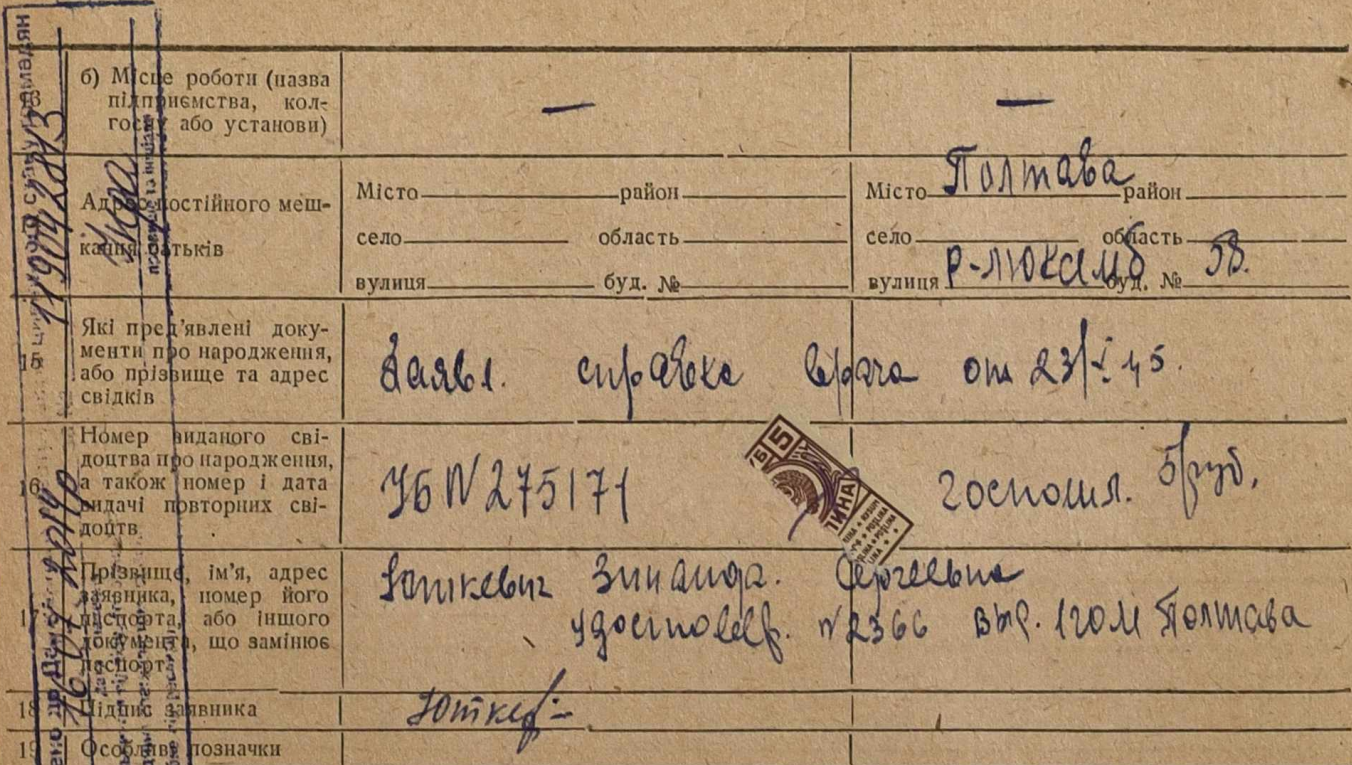 б) Місце роботи (назва
підприємства, кол-
госпу або установи) — —
Адрес постійного меш-
кання батьків
Місто район Місто Полтава район
село область село область
вулиця буд. № вулиця Р-Люкамб буд. № 58.
15 Які пред'явлені доку-
менти про народження,
або прізвище та адрес
свідків
Заявл. справка врача от 23/X 45.
16 Номер виданого сві-
доцтва про народження,
а також номер і дата
видачі повторних сві-
доцтв
УБ N 275171 госпошл. 5 руб.
17 Прізвище, ім'я, адрес
заявника, номер його
паспорта, або іншого
документа, що замінює
паспорт
Юткевич Зинаида. Сергеевна
удостовер. N 2366 выд. 1 гом Полтава
18 Підпис заявника Юткев
19 Особливі позначки